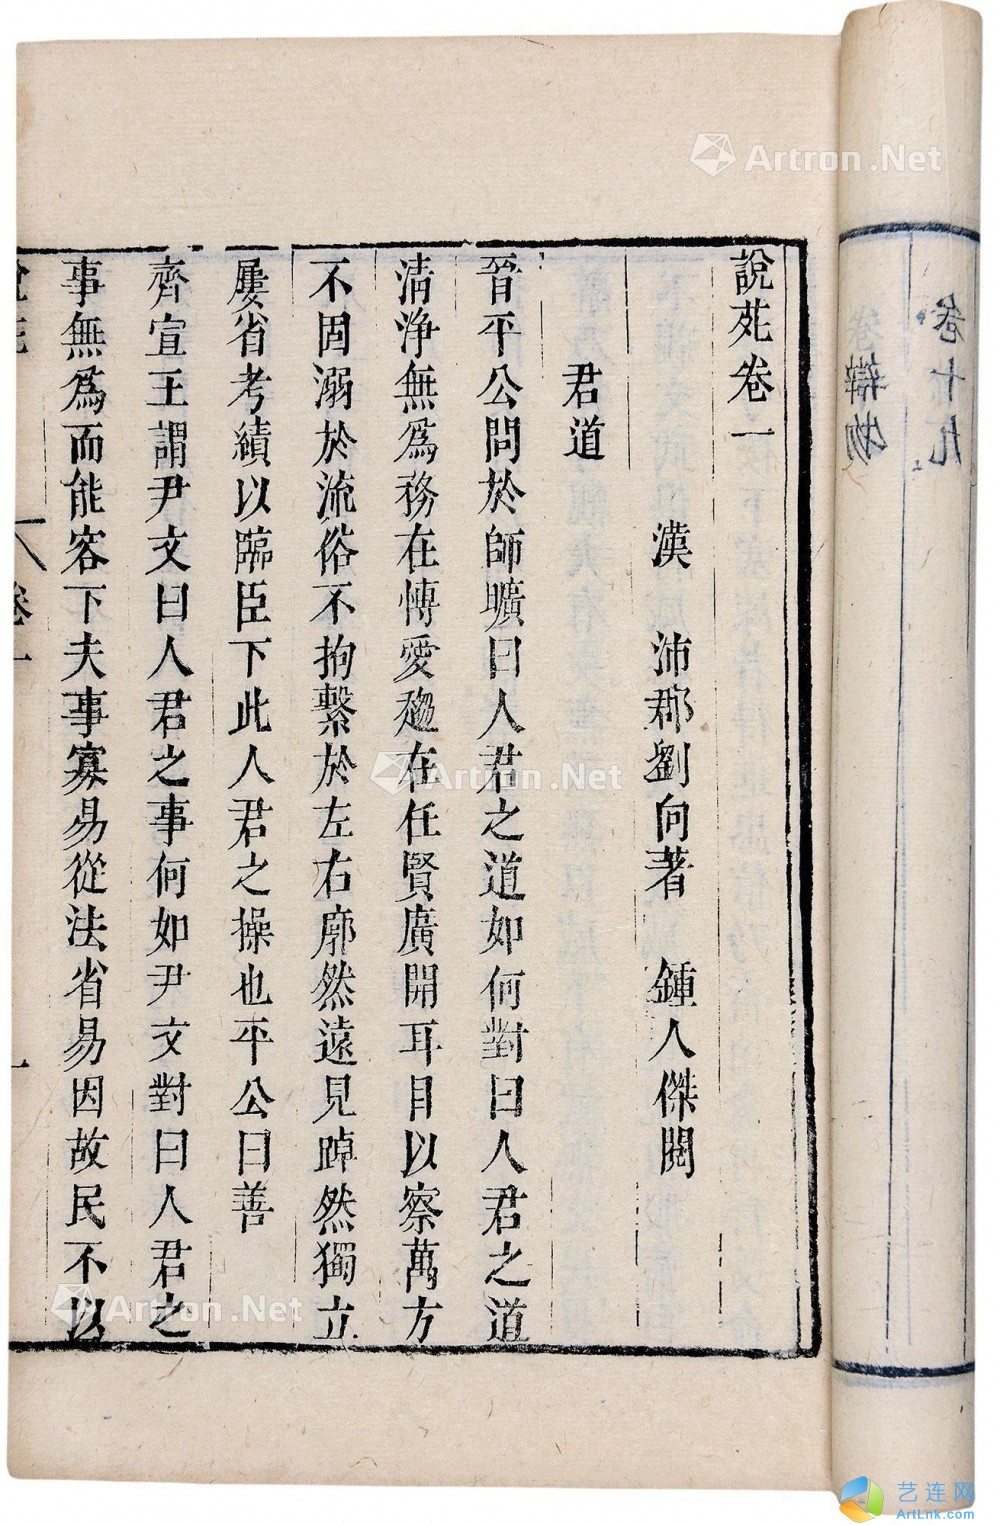 說苑卷一
漢 沛郡劉向著 鍾人傑閱
君道
晉平公問於師曠曰人君之道如何對曰人君之道
清淨無爲務在慱愛趨在任賢廣開耳目以察萬方
不固溺於流俗不拘繫於左右廓然遠見踔然獨立
屢省考績以臨臣下此人君之操也平公曰善
齊宣王謂尹文曰人君之事何如尹文對曰人君之
事無爲而能容下夫事寡易從法省易因故民不以
卷一
一
卷十九
卷
辯物
Artron.Net
Artron.Net
Artron.Net
艺连网
ArtLnk.com